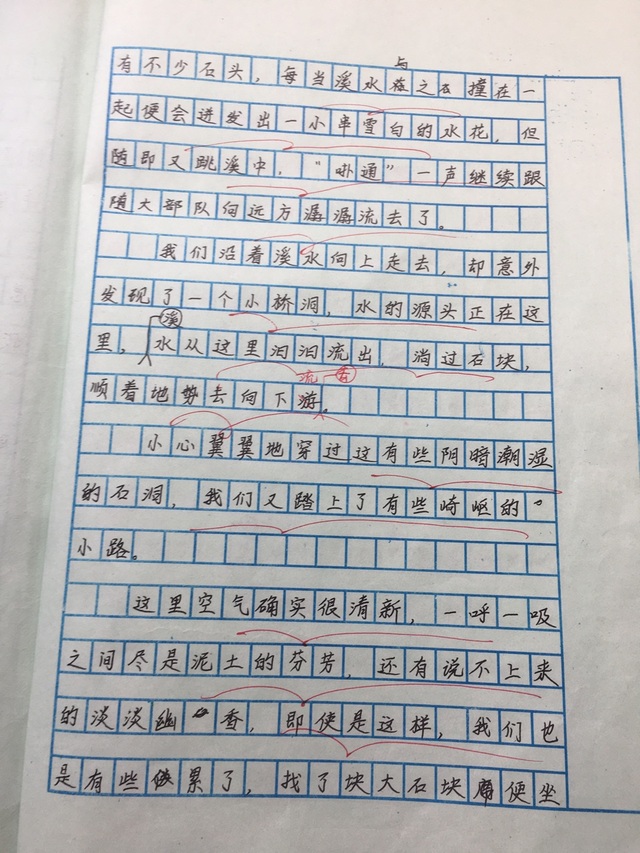 有不少石头，每当溪水与之撞在一
起便会迸发出一小串雪白的水花，但
随即又跳溪中，“卟通”一声继续跟
随大部队向远方潺潺流去了。
我们沿着溪水向上走去，却意外
发现了一个小桥洞，水的源头正在这
里，溪水从这里汩汩流出，淌过石块，
顺着地势去向下游。
流 香
小心翼翼地穿过这有些阴暗潮湿
的石洞，我们又踏上了有些崎岖的
小路。
这里空气确实很清新，一呼一吸
之间尽是泥土的芬芳，还有说不上来
的淡淡幽香，即使是这样，我们也
是有些累了，找了块大石块便坐